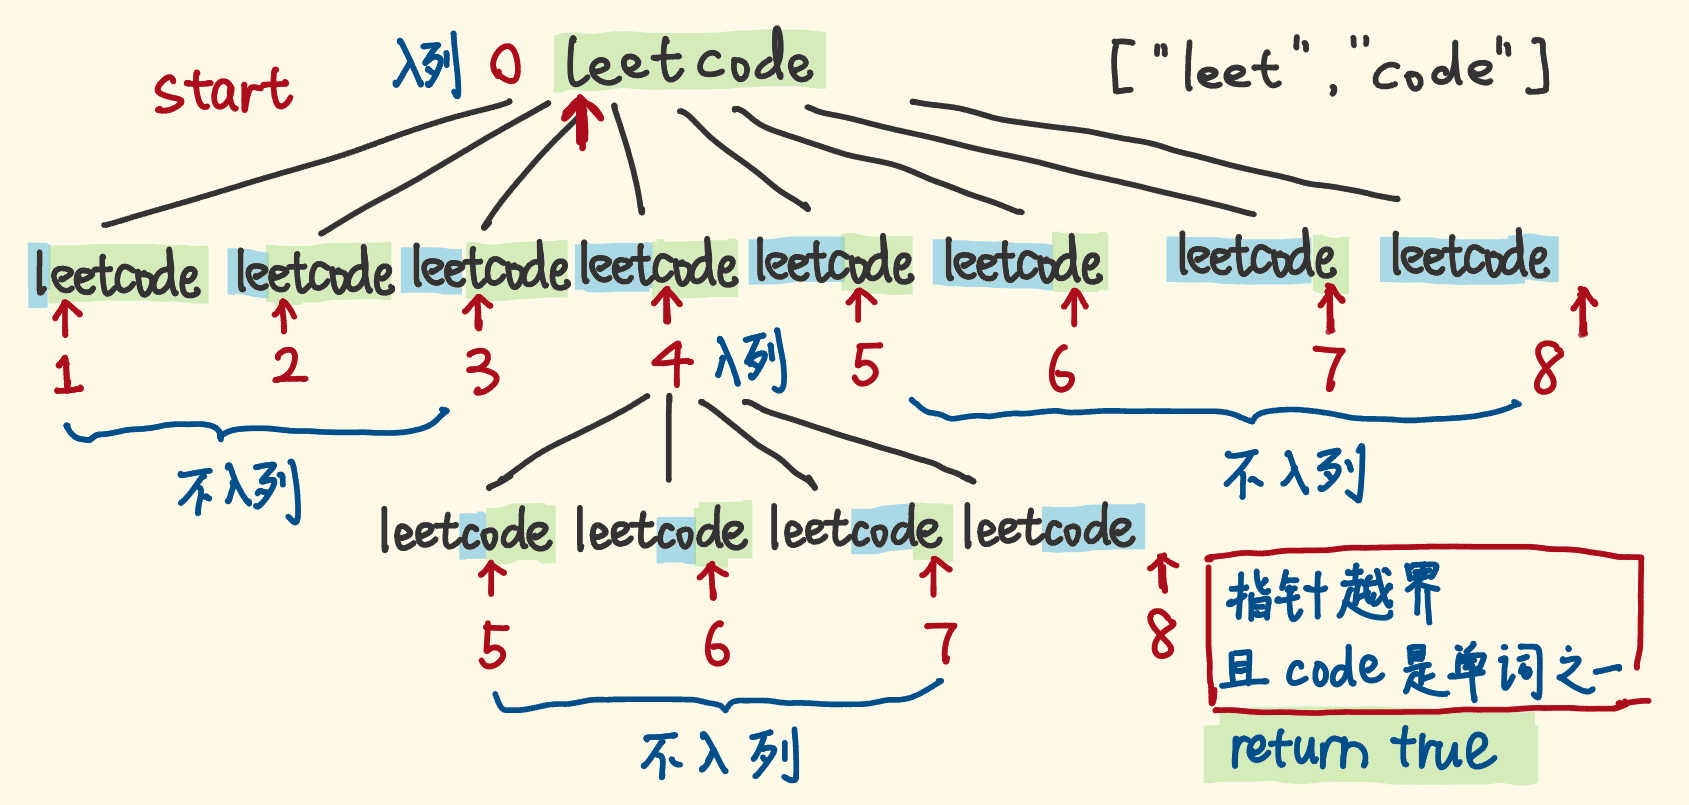 start 入列 0 leetcode ["leet","code"]
leetcode leetcode leetcode leetcode leetcode leetcode leetcode leetcode
1 2 3 4 入列 5 6 7 8
不入列 不入列
leetcode leetcode leetcode leetcode
5 6 7 8
指针越界
且 code 是单词之一
不入列
return true